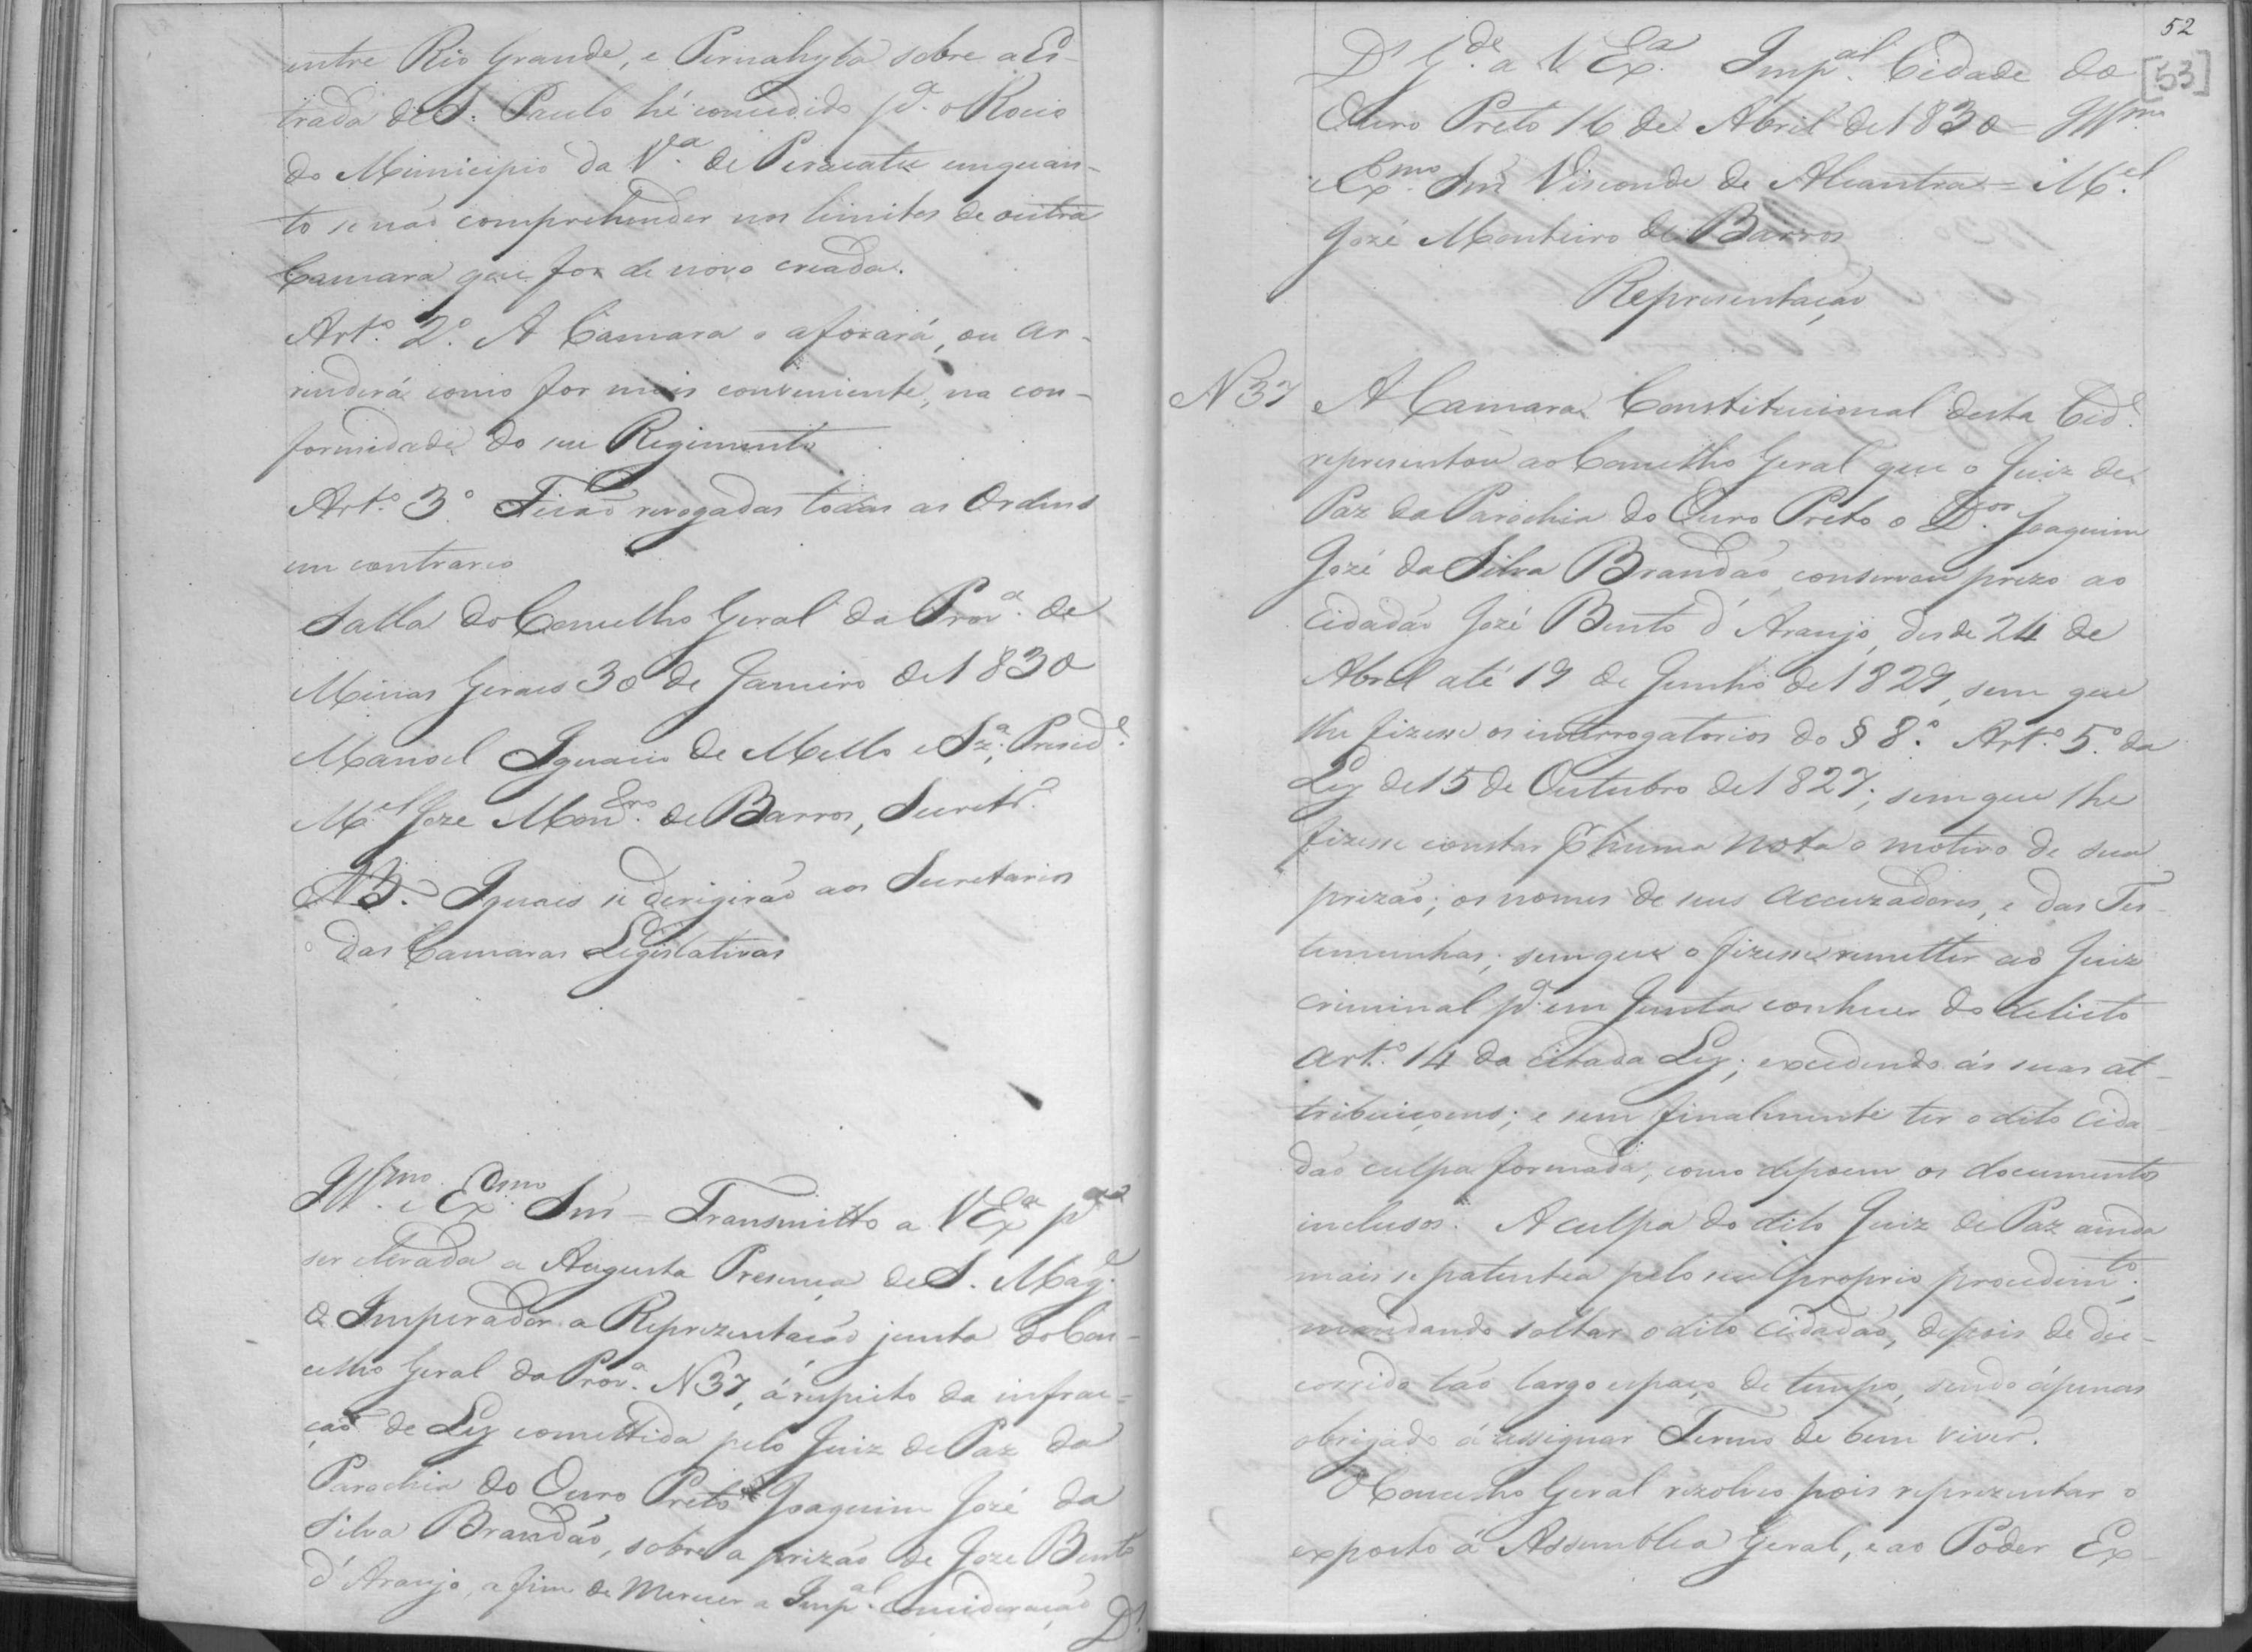 entre Rio Grande, e Pernahyba sobre a Es-
trada de S. Paulo hé concedido p.ª o Rocio
do Municipio da V.ª de Paracatu emquan-
to se não comprehender nos limites de outra
Camara que for de novo creada.
Art.º 2.º A Camara o aforará, ou ar-
renderá como for mais conveniente, na con-
formidade do seu Regimento
Art.º 3.º Ficão revogadas todas as Ordens
em contrario
Salla do Concelho Geral da Prov.ª de
Minas Geraes 30 de Janeiro de 1830
Manoel Ignacio de Mello e Sz.ª, Presid.e
M.el Joze Mont.ro de Barros, Secret.º
NB. Iguaes se derigirão aos Secretarios
das Camaras Legislativas
Ill.mo e Ex.mo Snr. - Transmitto a V Ex.ª p.ª
ser elevada a Augusta Presença de S. Mag.e
o Imperador a Reprezentação junta do Con-
celho Geral da Prov.ª N 37, á respeito da infrac-
ção de Ley comettida pelo Juiz de Paz da
Parochia do Ouro Preto Joaquim José da
Silva Brandão, sobre a prizão de Joze Bento
d'Araujo, a fim de merecer a Imp.al consideração
D.s
52
[53]
D.s G.de a V. Ex.ª Imp.al Cidade do
Ouro Preto 16 de Abril de 1830 = Ill.mo
e Ex.mo Snr. Visconde de Alcantra = M.el
José Monteiro de Barros
Representação
N 37
A Camara Constitucional desta Cid.e
representou ao Concelho Geral que o Juiz de
Paz da Parochia do Ouro Preto o D.or Joaquim
José da Silva Brandão conservou prezo ao
Cidadão José Bento d'Araujo, desde 24 de
Abril até 19 de Junho de 1829, sem que
lhe fizesse os interrogatorios do § 8.º Art.º 5.º da
Ley de 15 de Outubro de 1827; sem que lhe
fizesse constar p.r huma nota o motivo de sua
prizão; os nomes de seus accuzadores, e das Tes-
temunhas; sem que o fizesse remetter ao Juiz
criminal p.ª em Junta conhecer do delicto
art.º 14 da citada Ley; excedendo ás suas at-
tribuiçoens; e sem finalmente ter o dito Cida-
dão culpa formada, como depoem os documentos
inclusos. A culpa do dito Juiz de Paz ainda
mais se patentêa pelo seu proprio procedim.to,
mandando soltar o dito cidadão, depois de de-
corrido tão largo espaço de tempo, sendo ápenas
obrigado á assignar Termo de bem viver.
O Concelho Geral rezolveo pois reprezentar o
exposto á Assemblea Geral, e ao Poder Ex-